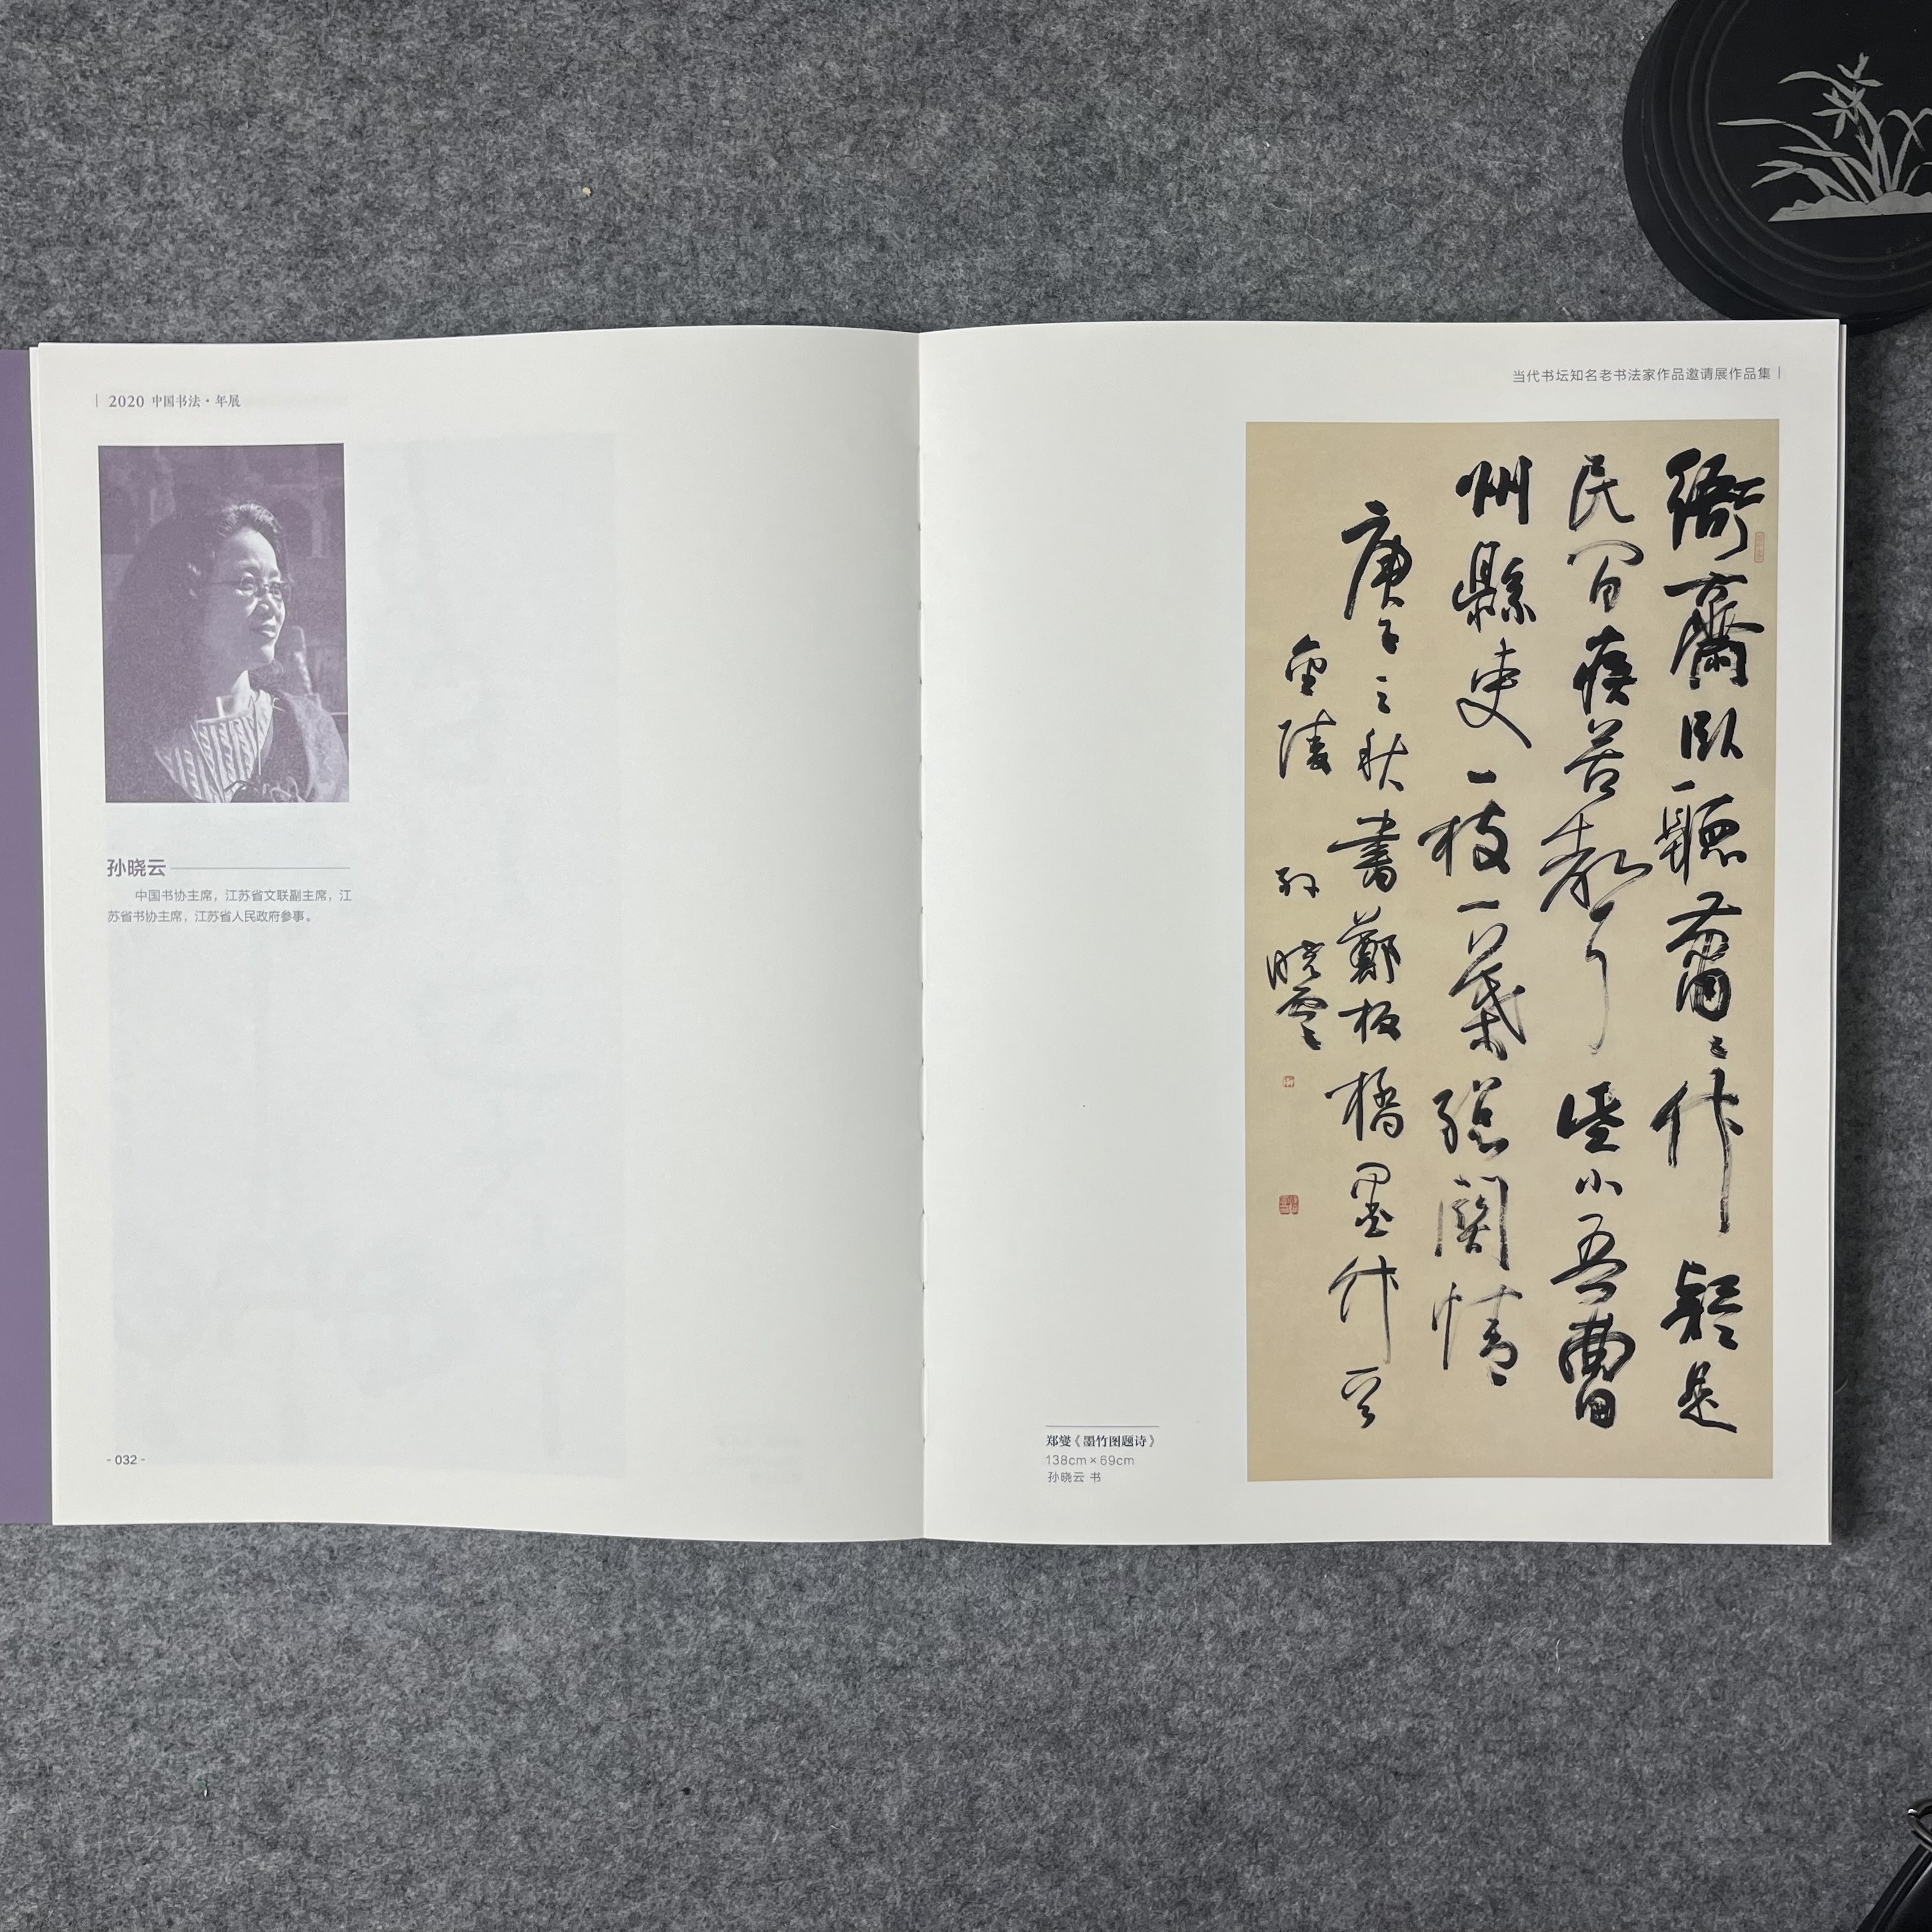 2020 中国书法·年展
孙晓云
中国书协主席，江苏省文联副主席，江
苏省书协主席，江苏省人民政府参事。
- 032 -
当代书坛知名老书法家作品邀请展作品集
衙齋臥聽蕭〻竹疑是
民間疾苦聲些小吾曹
州縣吏一枝一葉總關情
庚子之秋書鄭板橋墨竹
金陵孫曉雲
郑燮《墨竹图题诗》
138cm×69cm
孙晓云 书